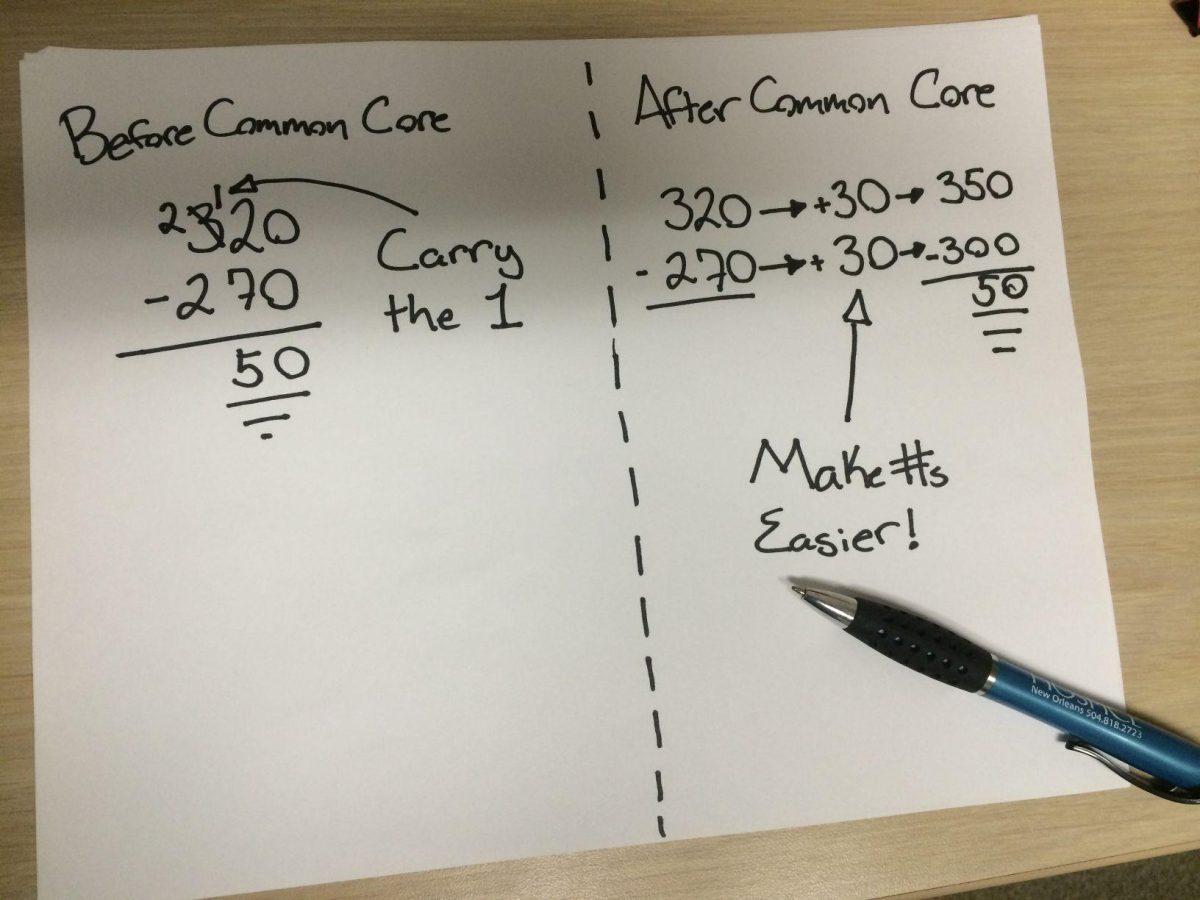 Before Common Core
2 3 1 20
- 270
50
Carry
the 1
After Common Core
320 → +30 → 350
- 270 → + 30 → -300
50
Make #s
Easier!
New Orleans 504.818.2723